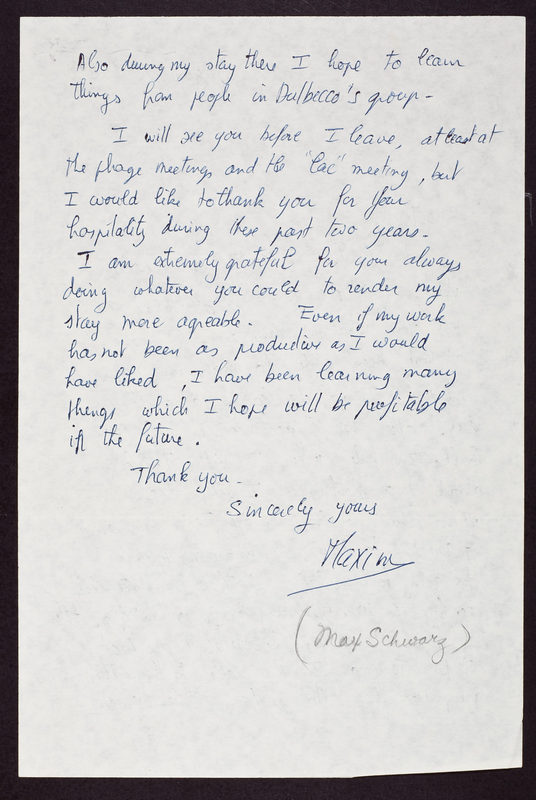 Also during my stay there I hope to learn
things from people in Dulbecco's group -
I will see you before I leave, at least at
the phage meetings and the "lac" meeting, but
I would like to thank you for your
hospitality during these past two years.
I am extremely grateful for your always
doing whatever you could to render my
stay more agreable. Even if my work
has not been as productive as I would
have liked, I have been learning many
things which I hope will be profitable
in the future.
Thank you -
Sincerely yours
Maxim
(Max Schwarz)